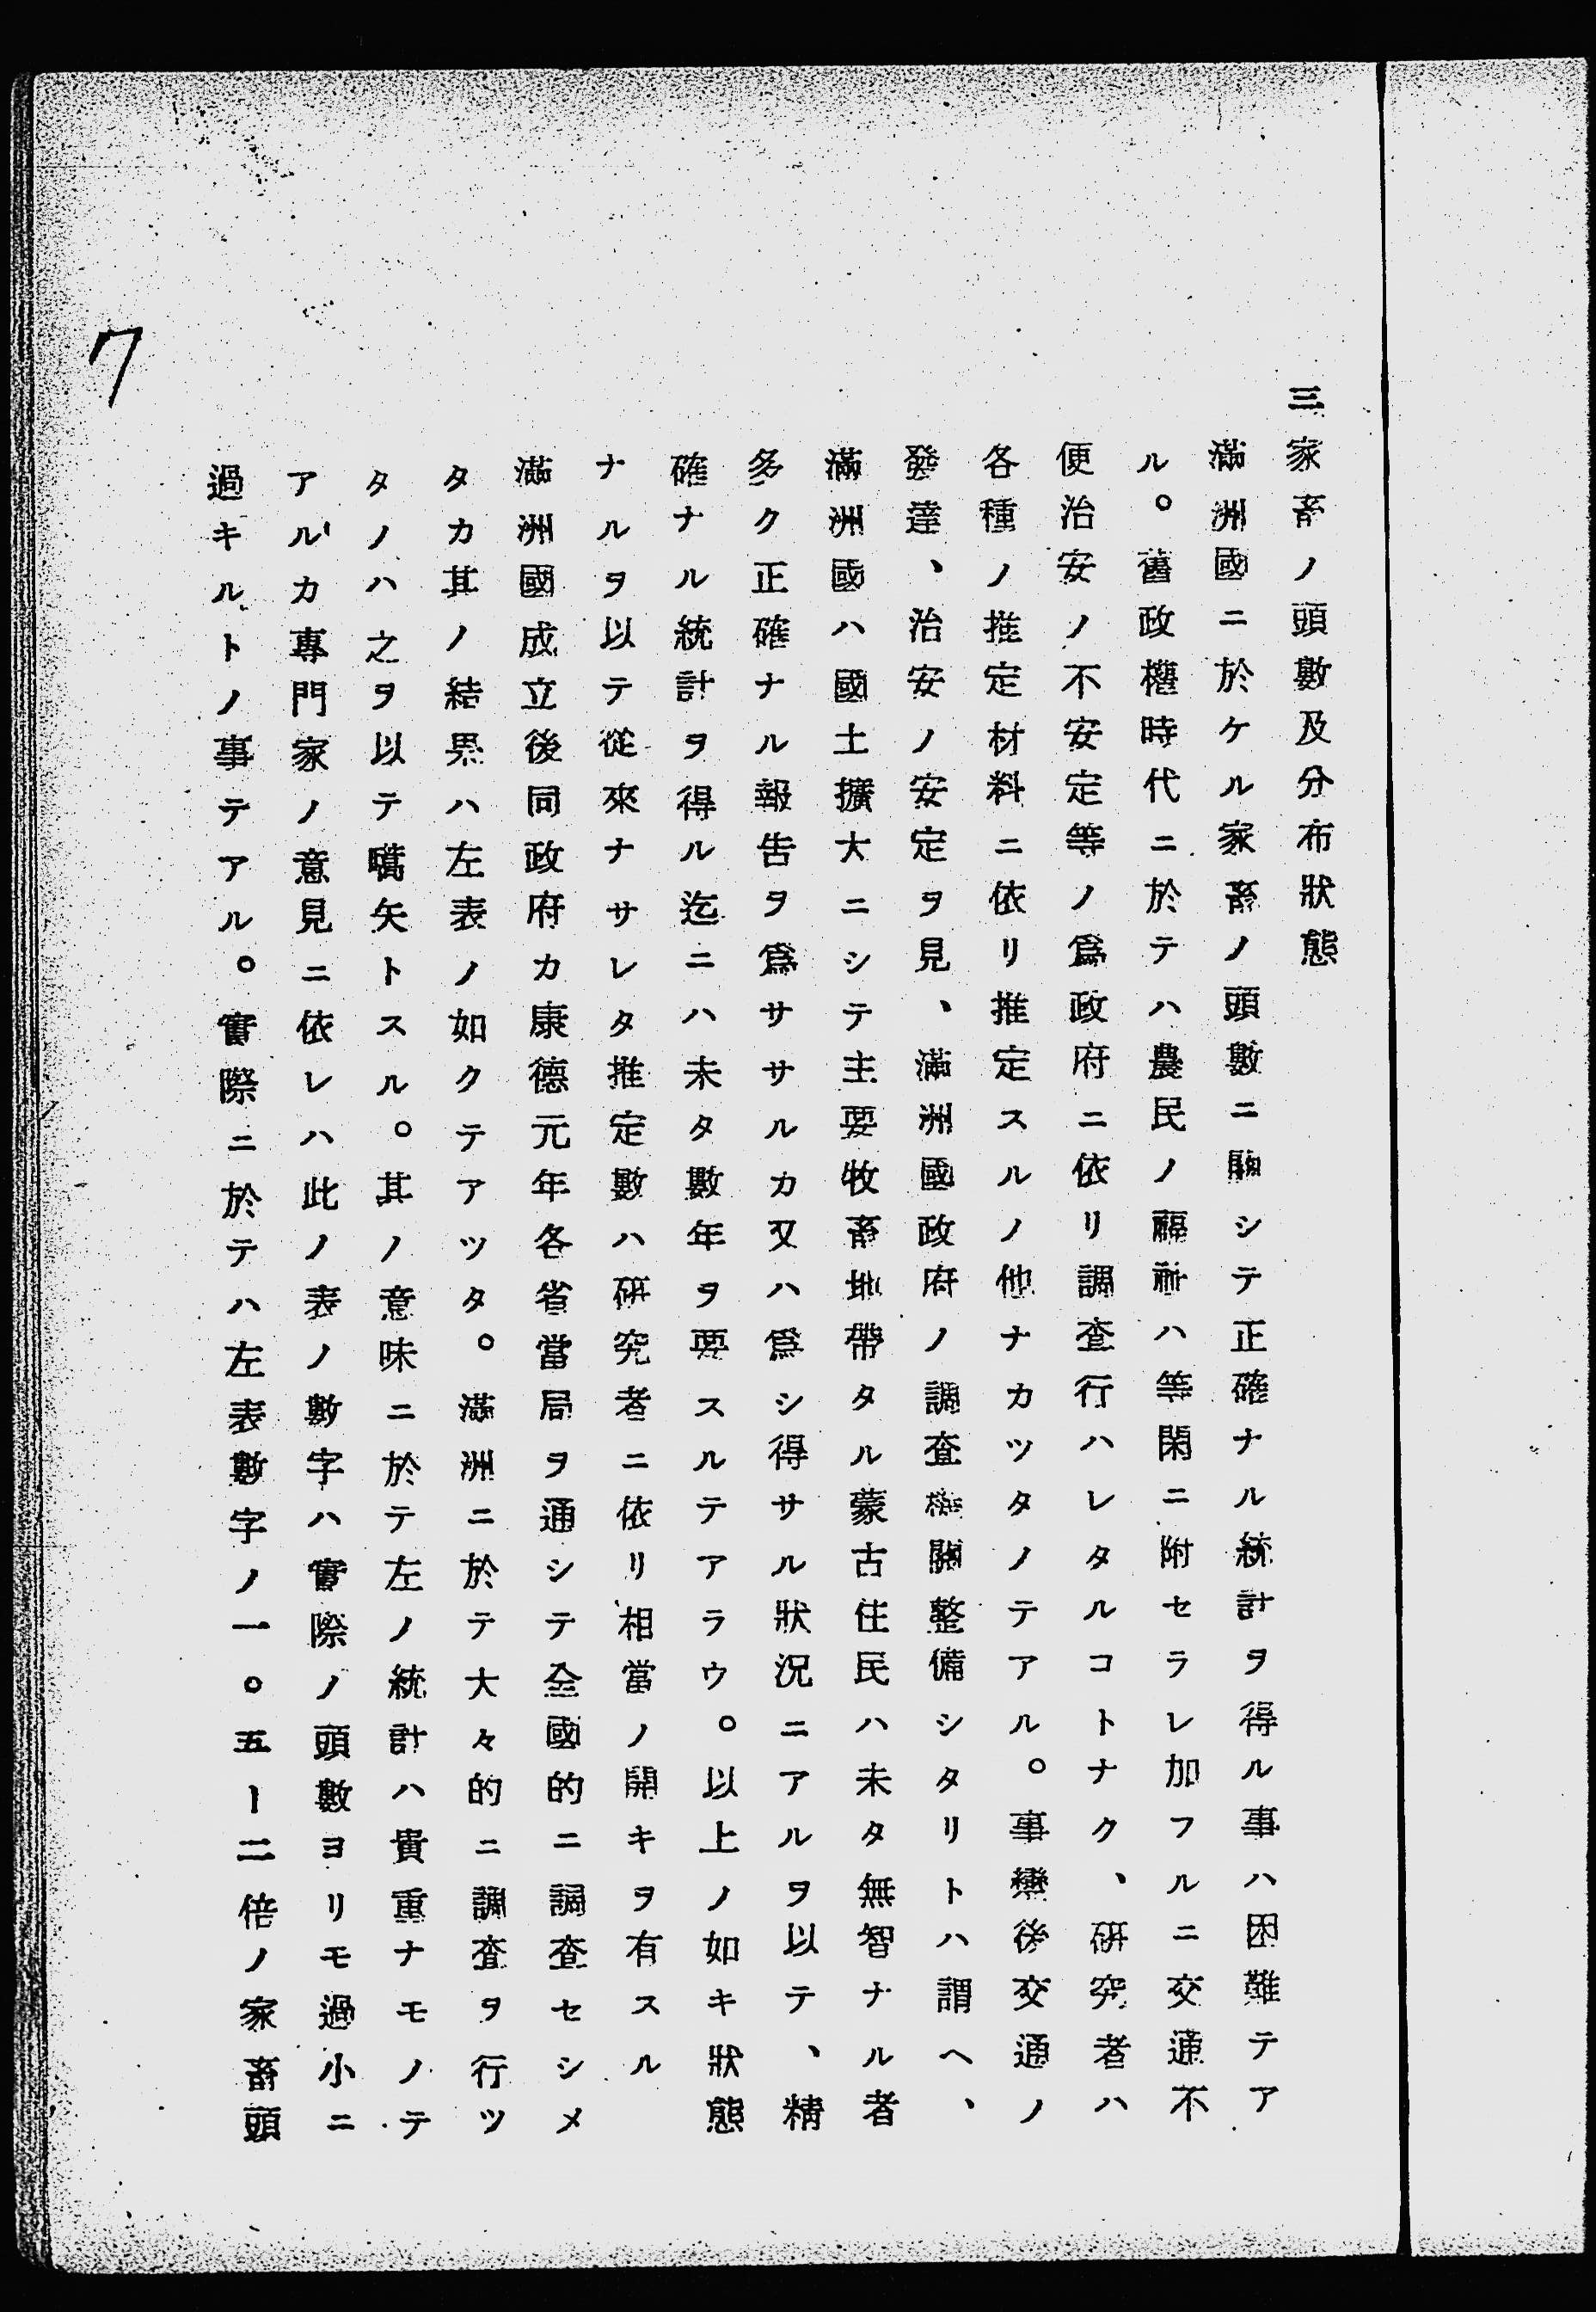 三家畜ノ頭數及分布狀態
滿洲國ニ於ケル家畜ノ頭數ニ關シテ正確ナル統計ヲ得ル事ハ困難テア
ル。舊政權時代ニ於テハ農民ノ福祉ハ等閑ニ附セラレ加フルニ交通不
便治安ノ不安定等ノ爲政府ニ依リ調査行ハレタルコトナク、硏究者ハ
各種ノ推定材料ニ依リ推定スルノ他ナカツタノテアル。事變後交通ノ
發達、治安ノ安定ヲ見、滿洲國政府ノ調査機關整備シタリトハ謂ヘ、
滿洲國ハ國土擴大ニシテ主要牧畜地帶タル蒙古住民ハ未タ無智ナル者
多ク正確ナル報告ヲ爲ササルカ又ハ爲シ得サル狀況ニアルヲ以テ、精
確ナル統計ヲ得ル迄ニハ未タ數年ヲ要スルテアラウ。以上ノ如キ狀態
ナルヲ以テ從來ナサレタ推定數ハ硏究者ニ依リ相當ノ開キヲ有スル
滿洲國成立後同政府カ康德元年各省當局ヲ通シテ全國的ニ調査セシメ
タカ其ノ結果ハ左表ノ如クテアツタ。滿洲ニ於テ大々的ニ調査ヲ行ツ
タノハ之ヲ以テ嚆矢トスル。其ノ意味ニ於テ左ノ統計ハ貴重ナモノテ
アルカ專門家ノ意見ニ依レハ此ノ表ノ數字ハ實際ノ頭數ヨリモ過小ニ
過キルトノ事テアル。實際ニ於テハ左表數字ノ一。五ー二倍ノ家畜頭
7